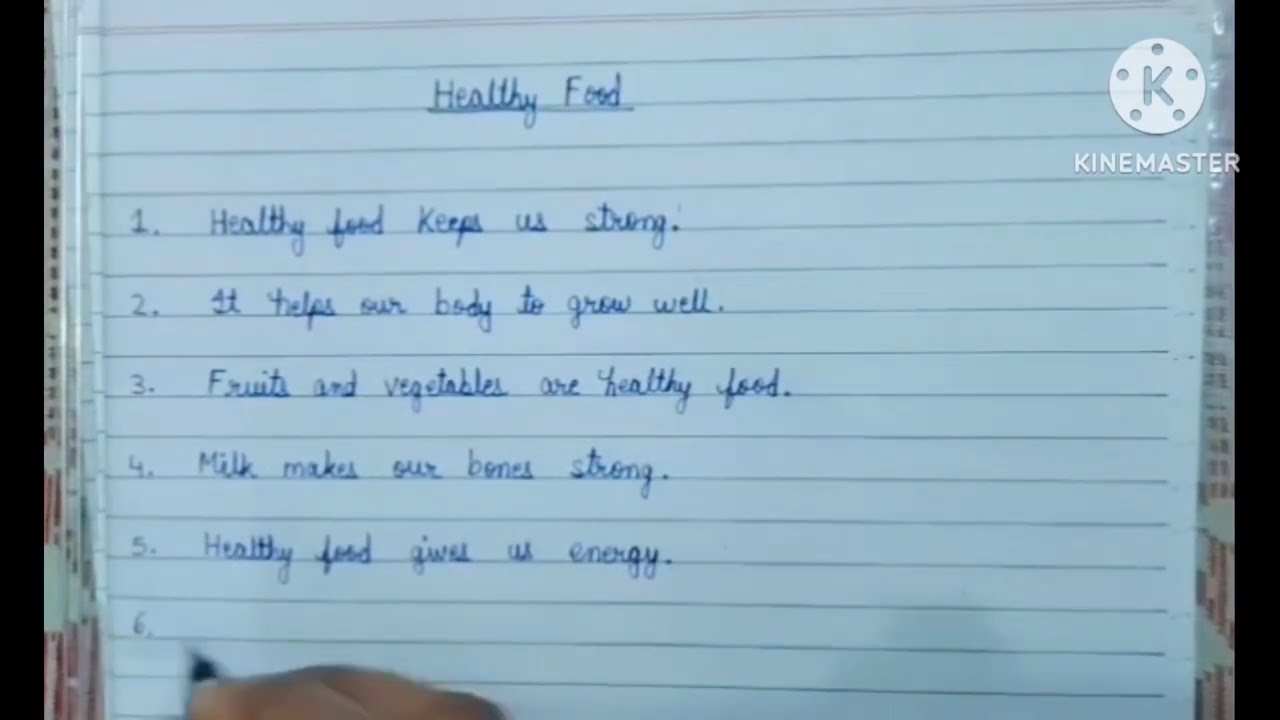 Healthy Food
KINEMASTER
1. Healthy food keeps us strong.
2. It helps our body to grow well.
3. Fruits and vegetables are healthy food.
4. Milk makes our bones strong.
5. Healthy food gives us energy.
6.